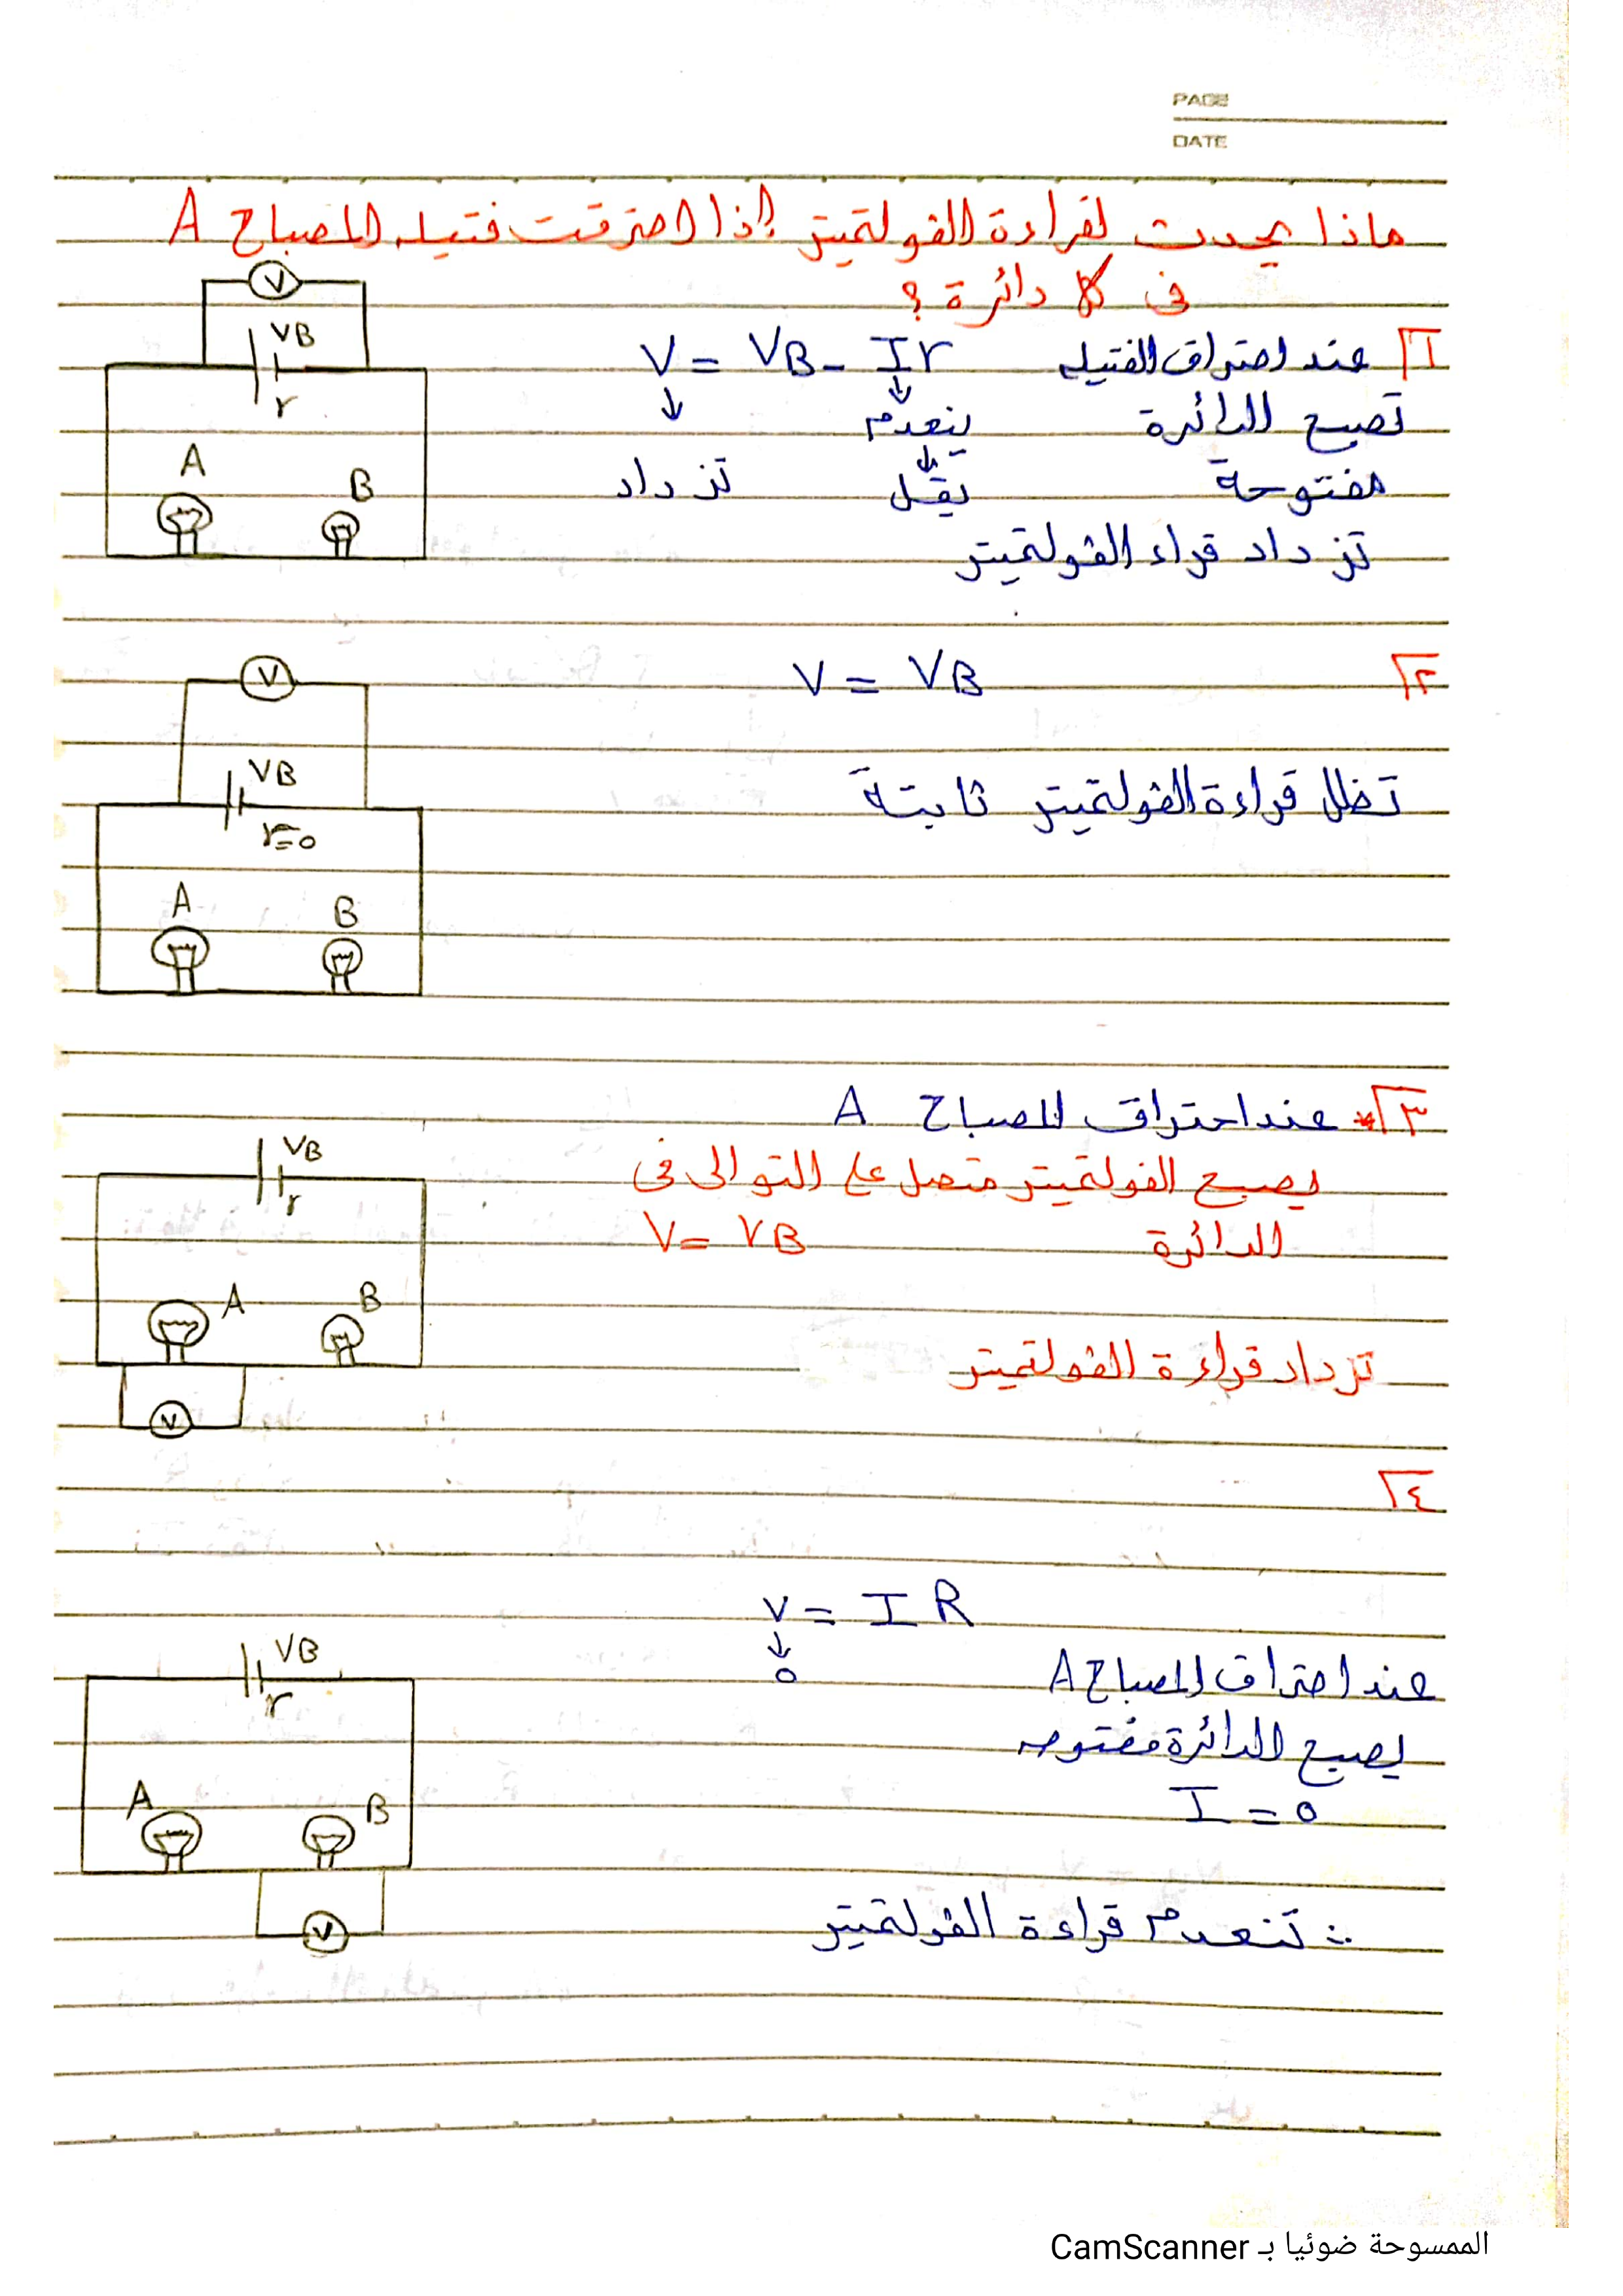 PAGE
DATE
ماذا يحدث لقراءة الفولتميتر إذا احترقت فتيله المصباح A
فى كلا دائرة ؟
١ عند احتراق الفتيله V = VB - Ir
تصبح الدائرة ↓ ينعدم ↓
مفتوحة ↓ يقل تزداد
تزداد قراء الفولتميتر
VB
r
A
B
V
٢ V = VB
تظل قراءة الفولتميتر ثابتة
V
VB
r=0
A
B
٣ * عند احتراق المصباح A
يصبح الفولتميتر متصل على التوالى فى
الدائرة V = VB
تزداد قراءة الفولتميتر
VB
r
A
B
V
٤
V = IR
↓
0
عند احتراق المصباح A
يصبح الدائرة مفتوحه
I = 0
∴ تنعدم قراءة الفولتميتر
VB
r
A
B
V
الممسوحة ضوئيا بـ CamScanner